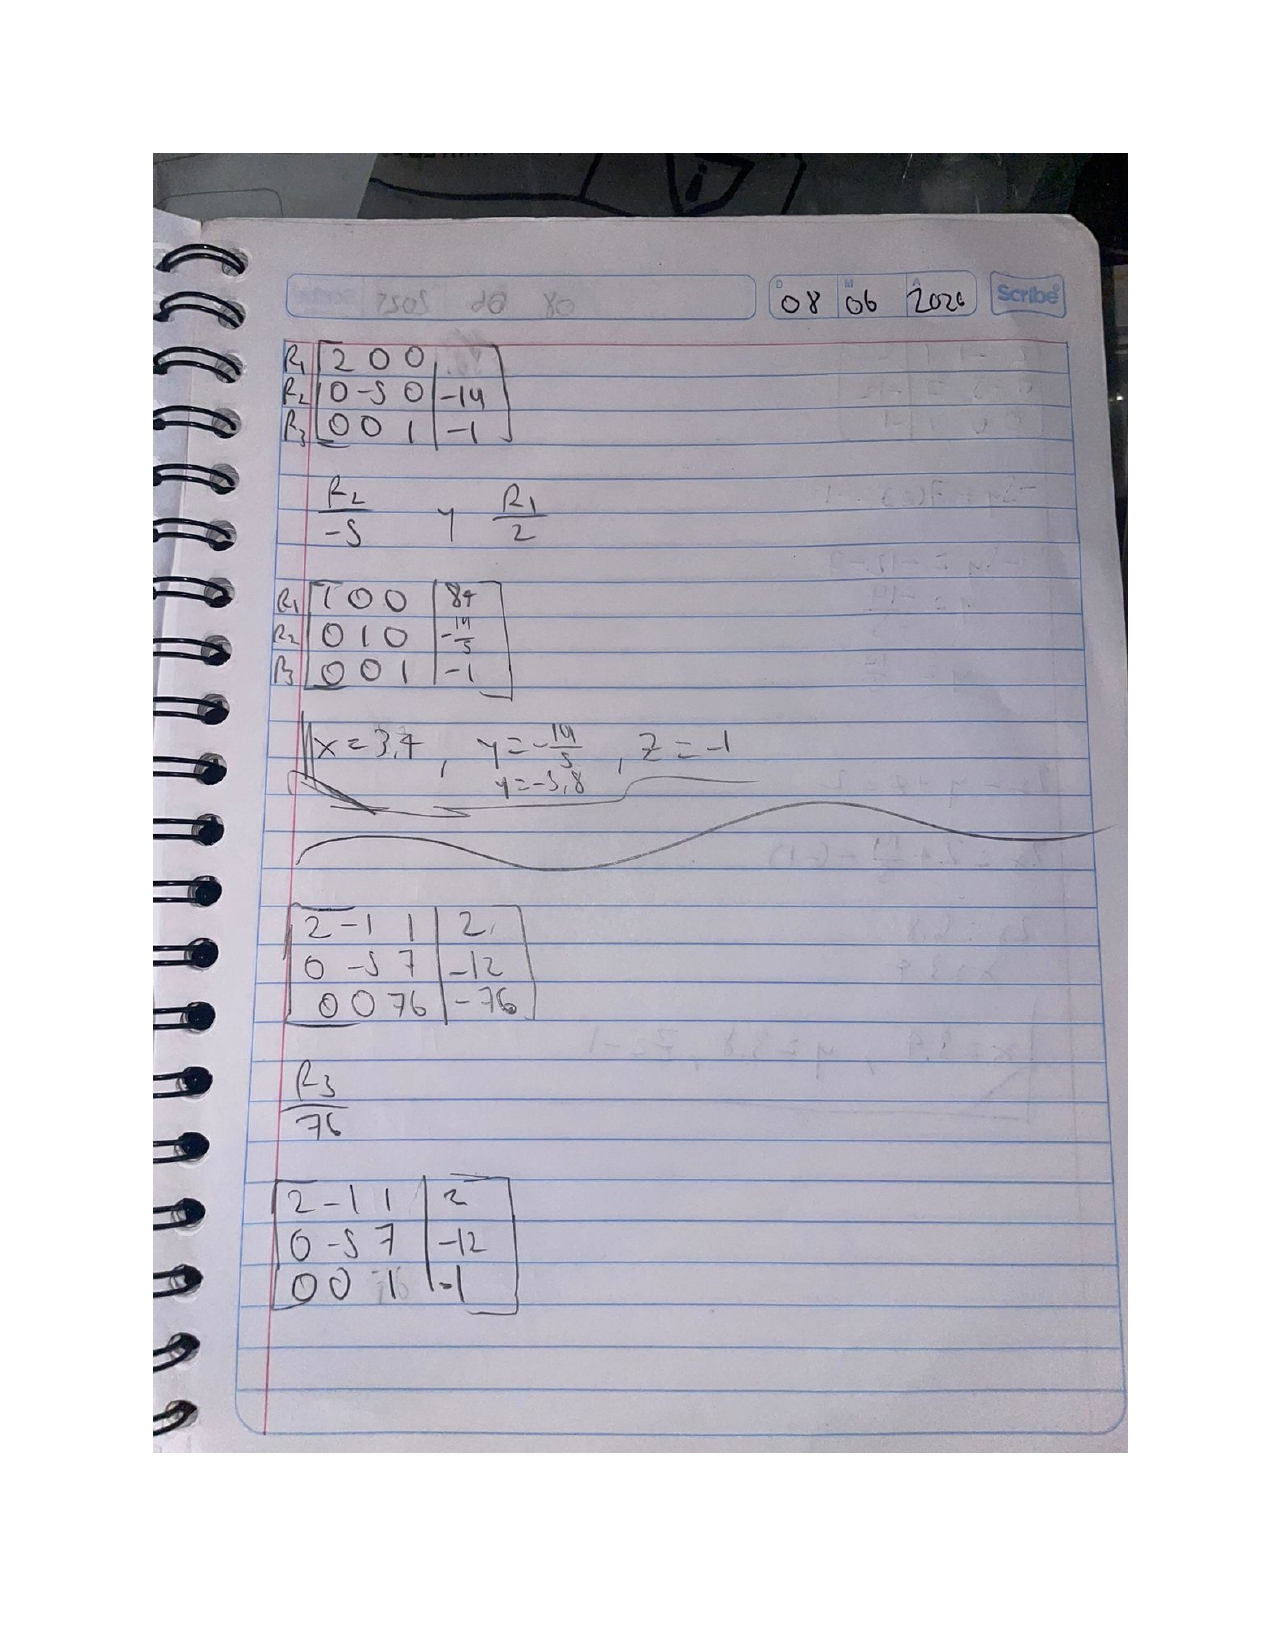 08 06 2026 Scribe
R1 2 0 0
R2 0 -5 0 | -14
R3 0 0 1 | -1
R2/-5 y R1/2
R1 1 0 0 | 84
R2 0 1 0 | -14/5
R3 0 0 1 | -1
x = 3,4 , y = -14/5 , z = -1
y = -3,8
2 -1 1 | 2
0 -5 7 | -12
0 0 76 | -76
R3/76
2 -1 1 | 2
0 -5 7 | -12
0 0 1 | -1